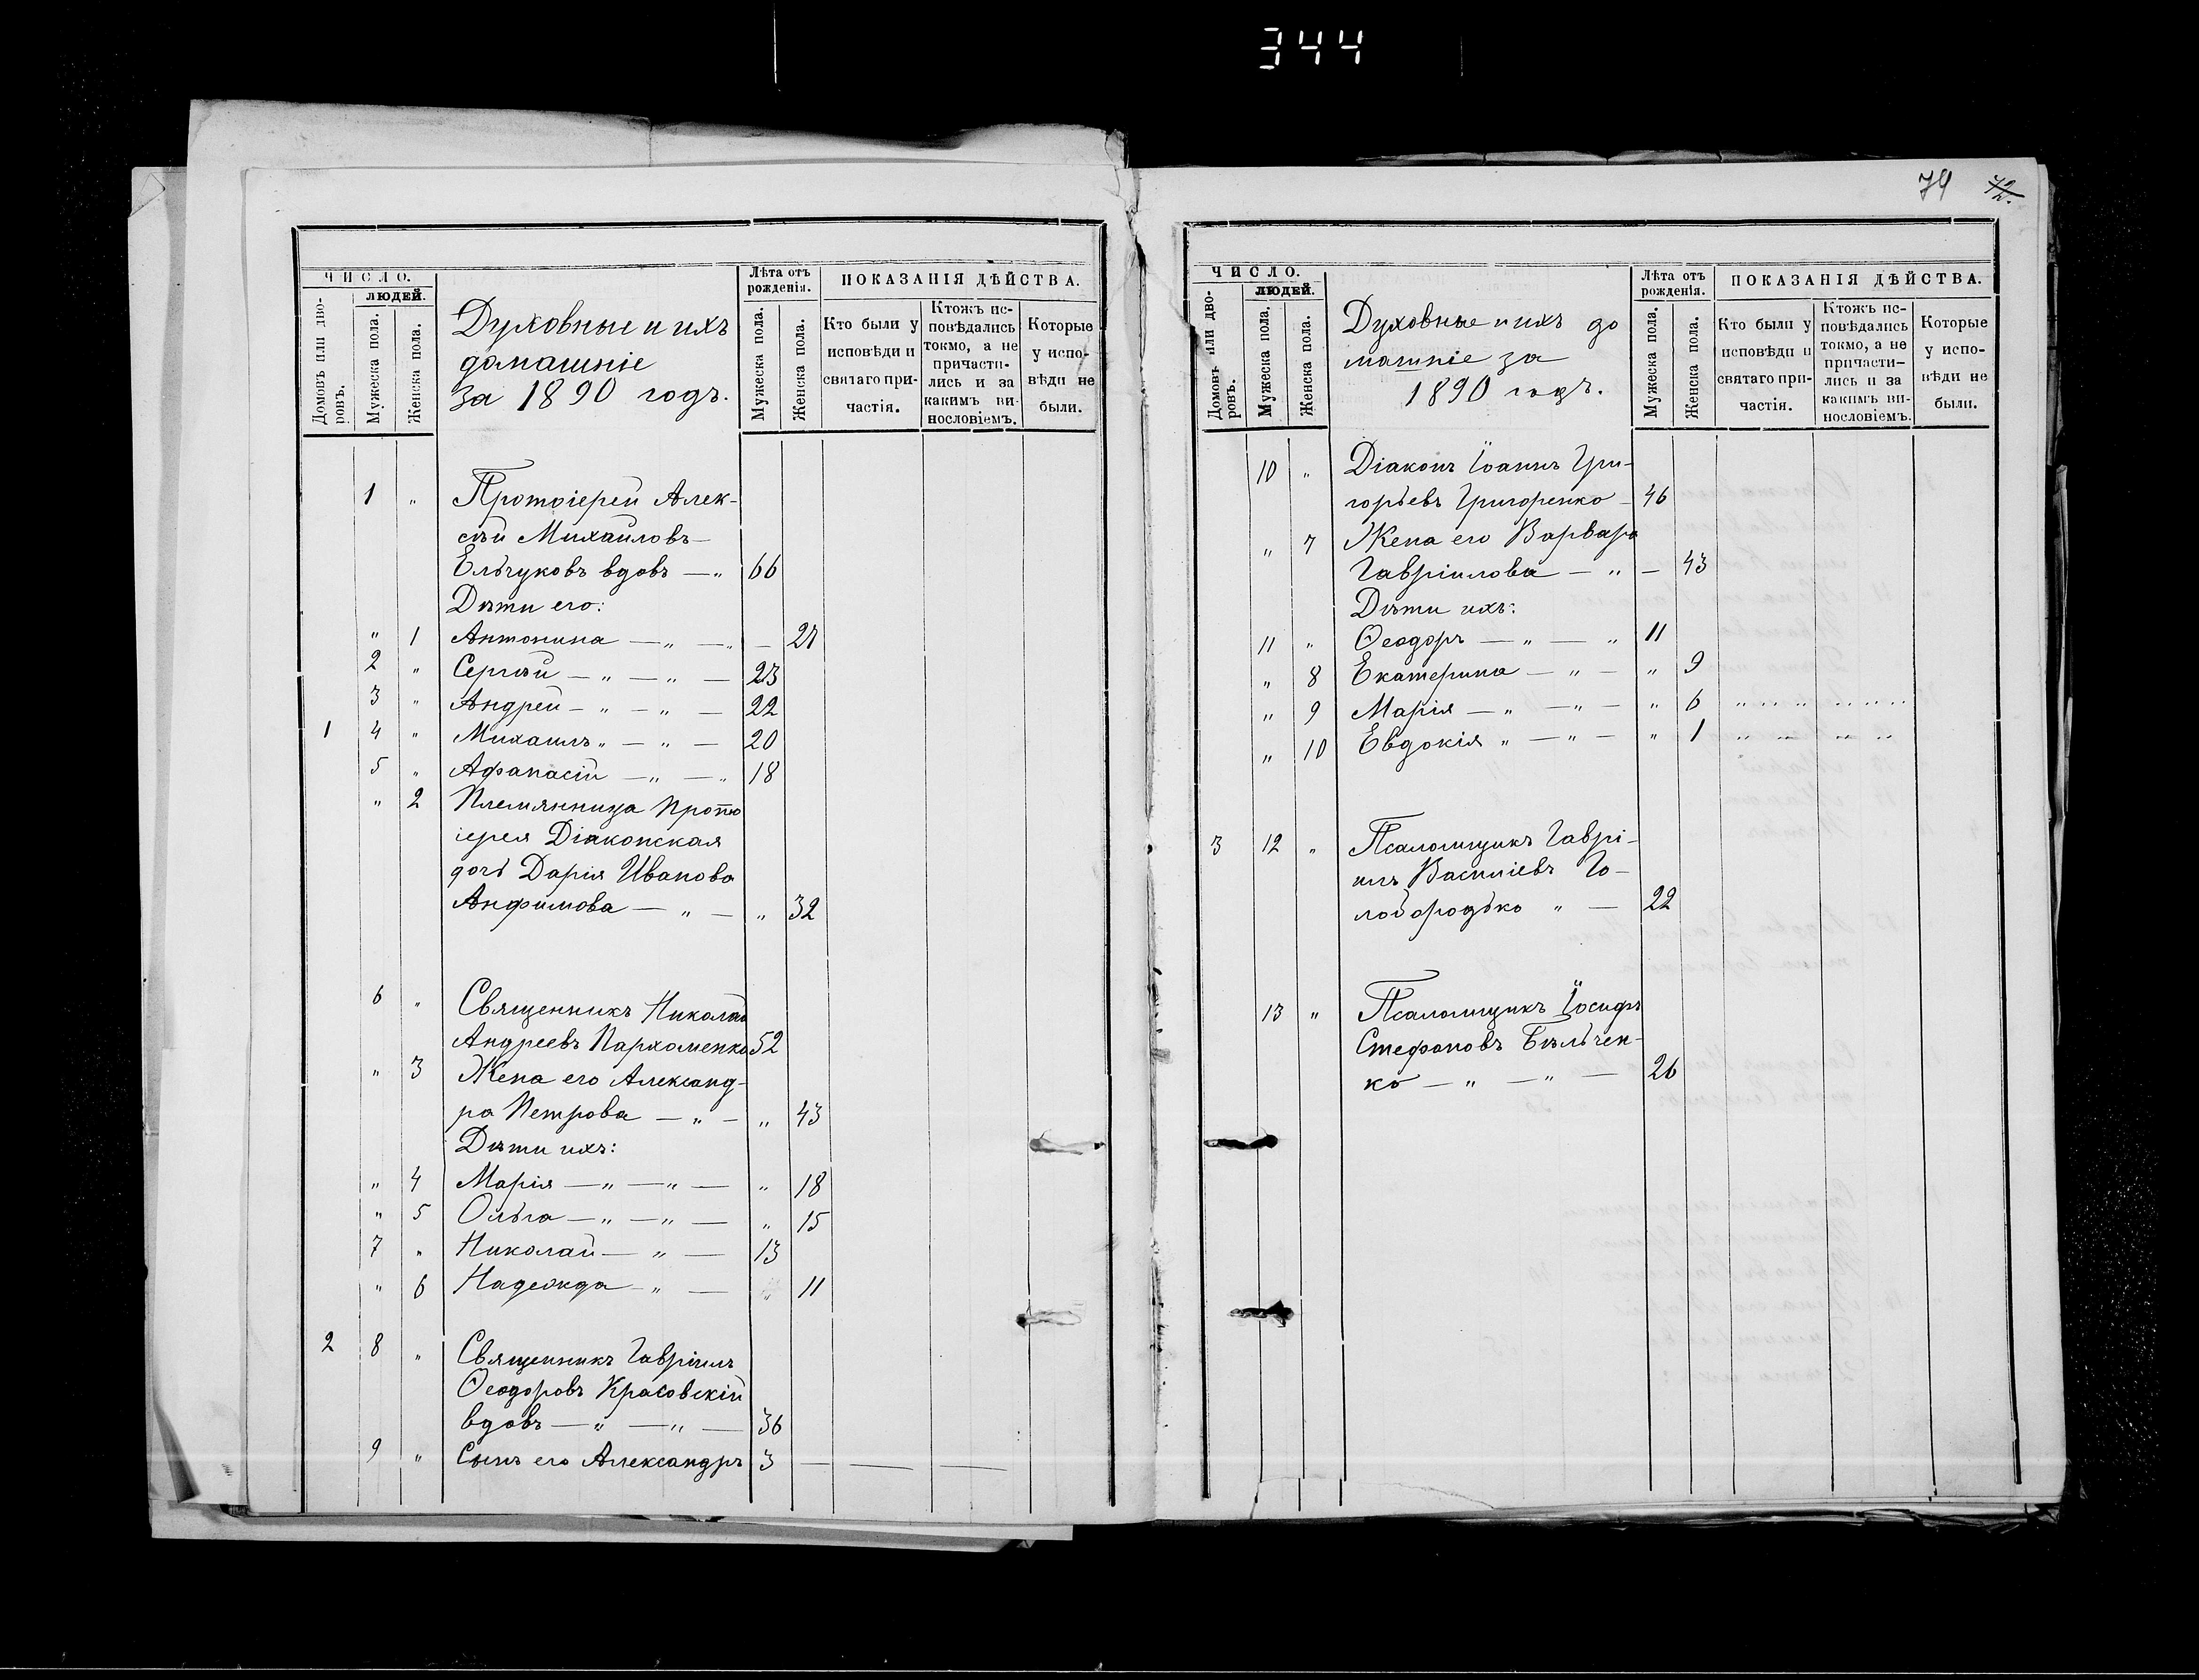 344
ЧИСЛО.
людей.
Домовъ или дво-
ровъ.
Мужеска пола.
Женска пола.
Духовные и ихъ
домашніе
за 1890 годъ.
Лѣта отъ
рожденія.
Мужеска пола.
Женска пола.
ПОКАЗАНІЯ ДѢЙСТВА.
Кто были у
исповѣди и
святаго при-
частія.
Ктожъ ис-
повѣдались
токмо, а не
причасти-
лись и за
какимъ ви-
нословіемъ.
Которые
у испо-
вѣди не
были.
1 " Протоіерей Алек-
сѣй Михайловъ
Ельчуковъ вдовъ — " 66
Дѣти его:
" 1 Антонина — " — " — 27
2 " Сергѣй — " — " — 23
3 " Андрей — " — " — 22
1 4 " Михаилъ " — " — 20
5 " Афанасій — " — " 18
" 2 Племянница прото
іерея Діаконская
дочь Дарія Иванова
Анфимова — " — " 32
6 " Священникъ Николай
Андреевъ Пархоменко 52
" 3 Жена его Александ-
ра Петрова — " — " 43
Дѣти ихъ:
" 4 Марія — " — " — " 18
" 5 Ольга — " — " — " 15
7 " Николай — " — 13
" 6 Надежда — " — " 11
2 8 " Священникъ Гавріилъ
Ѳеодоровъ Красовскій
вдовъ — " — " — 36
9 " Сынъ его Александръ 3 — — —
79 72.
ЧИСЛО.
людей.
Домовъ или дво-
ровъ.
Мужеска пола.
Женска пола.
Духовные и ихъ до
машніе за
1890 годъ.
Лѣта отъ
рожденія.
Мужеска пола.
Женска пола.
ПОКАЗАНІЯ ДѢЙСТВА.
Кто были у
исповѣди и
святаго при-
частія.
Ктожъ ис-
повѣдались
токмо, а не
причасти-
лись и за
какимъ ви-
нословіемъ.
Которые
у испо-
вѣди не
были.
10 " Діаконъ Іоаннъ Гри-
горьевъ Григоренко — 46
" 7 Жена его Варвара
Гавріилова — " — 43
Дѣти ихъ:
11 " Ѳеодоръ — " — " 11
" 8 Екатерина — " — " 9
" 9 Марія — " — " — " 6 " " " " " "
" 10 Евдокія " — " — " 1 " " " "
3 12 " Псаломщикъ Гаврі-
илъ Василіевъ Го-
лобородько " — 22
13 " Псаломщикъ Іосифъ
Стефановъ Бѣльчен-
ко — " — " — 26